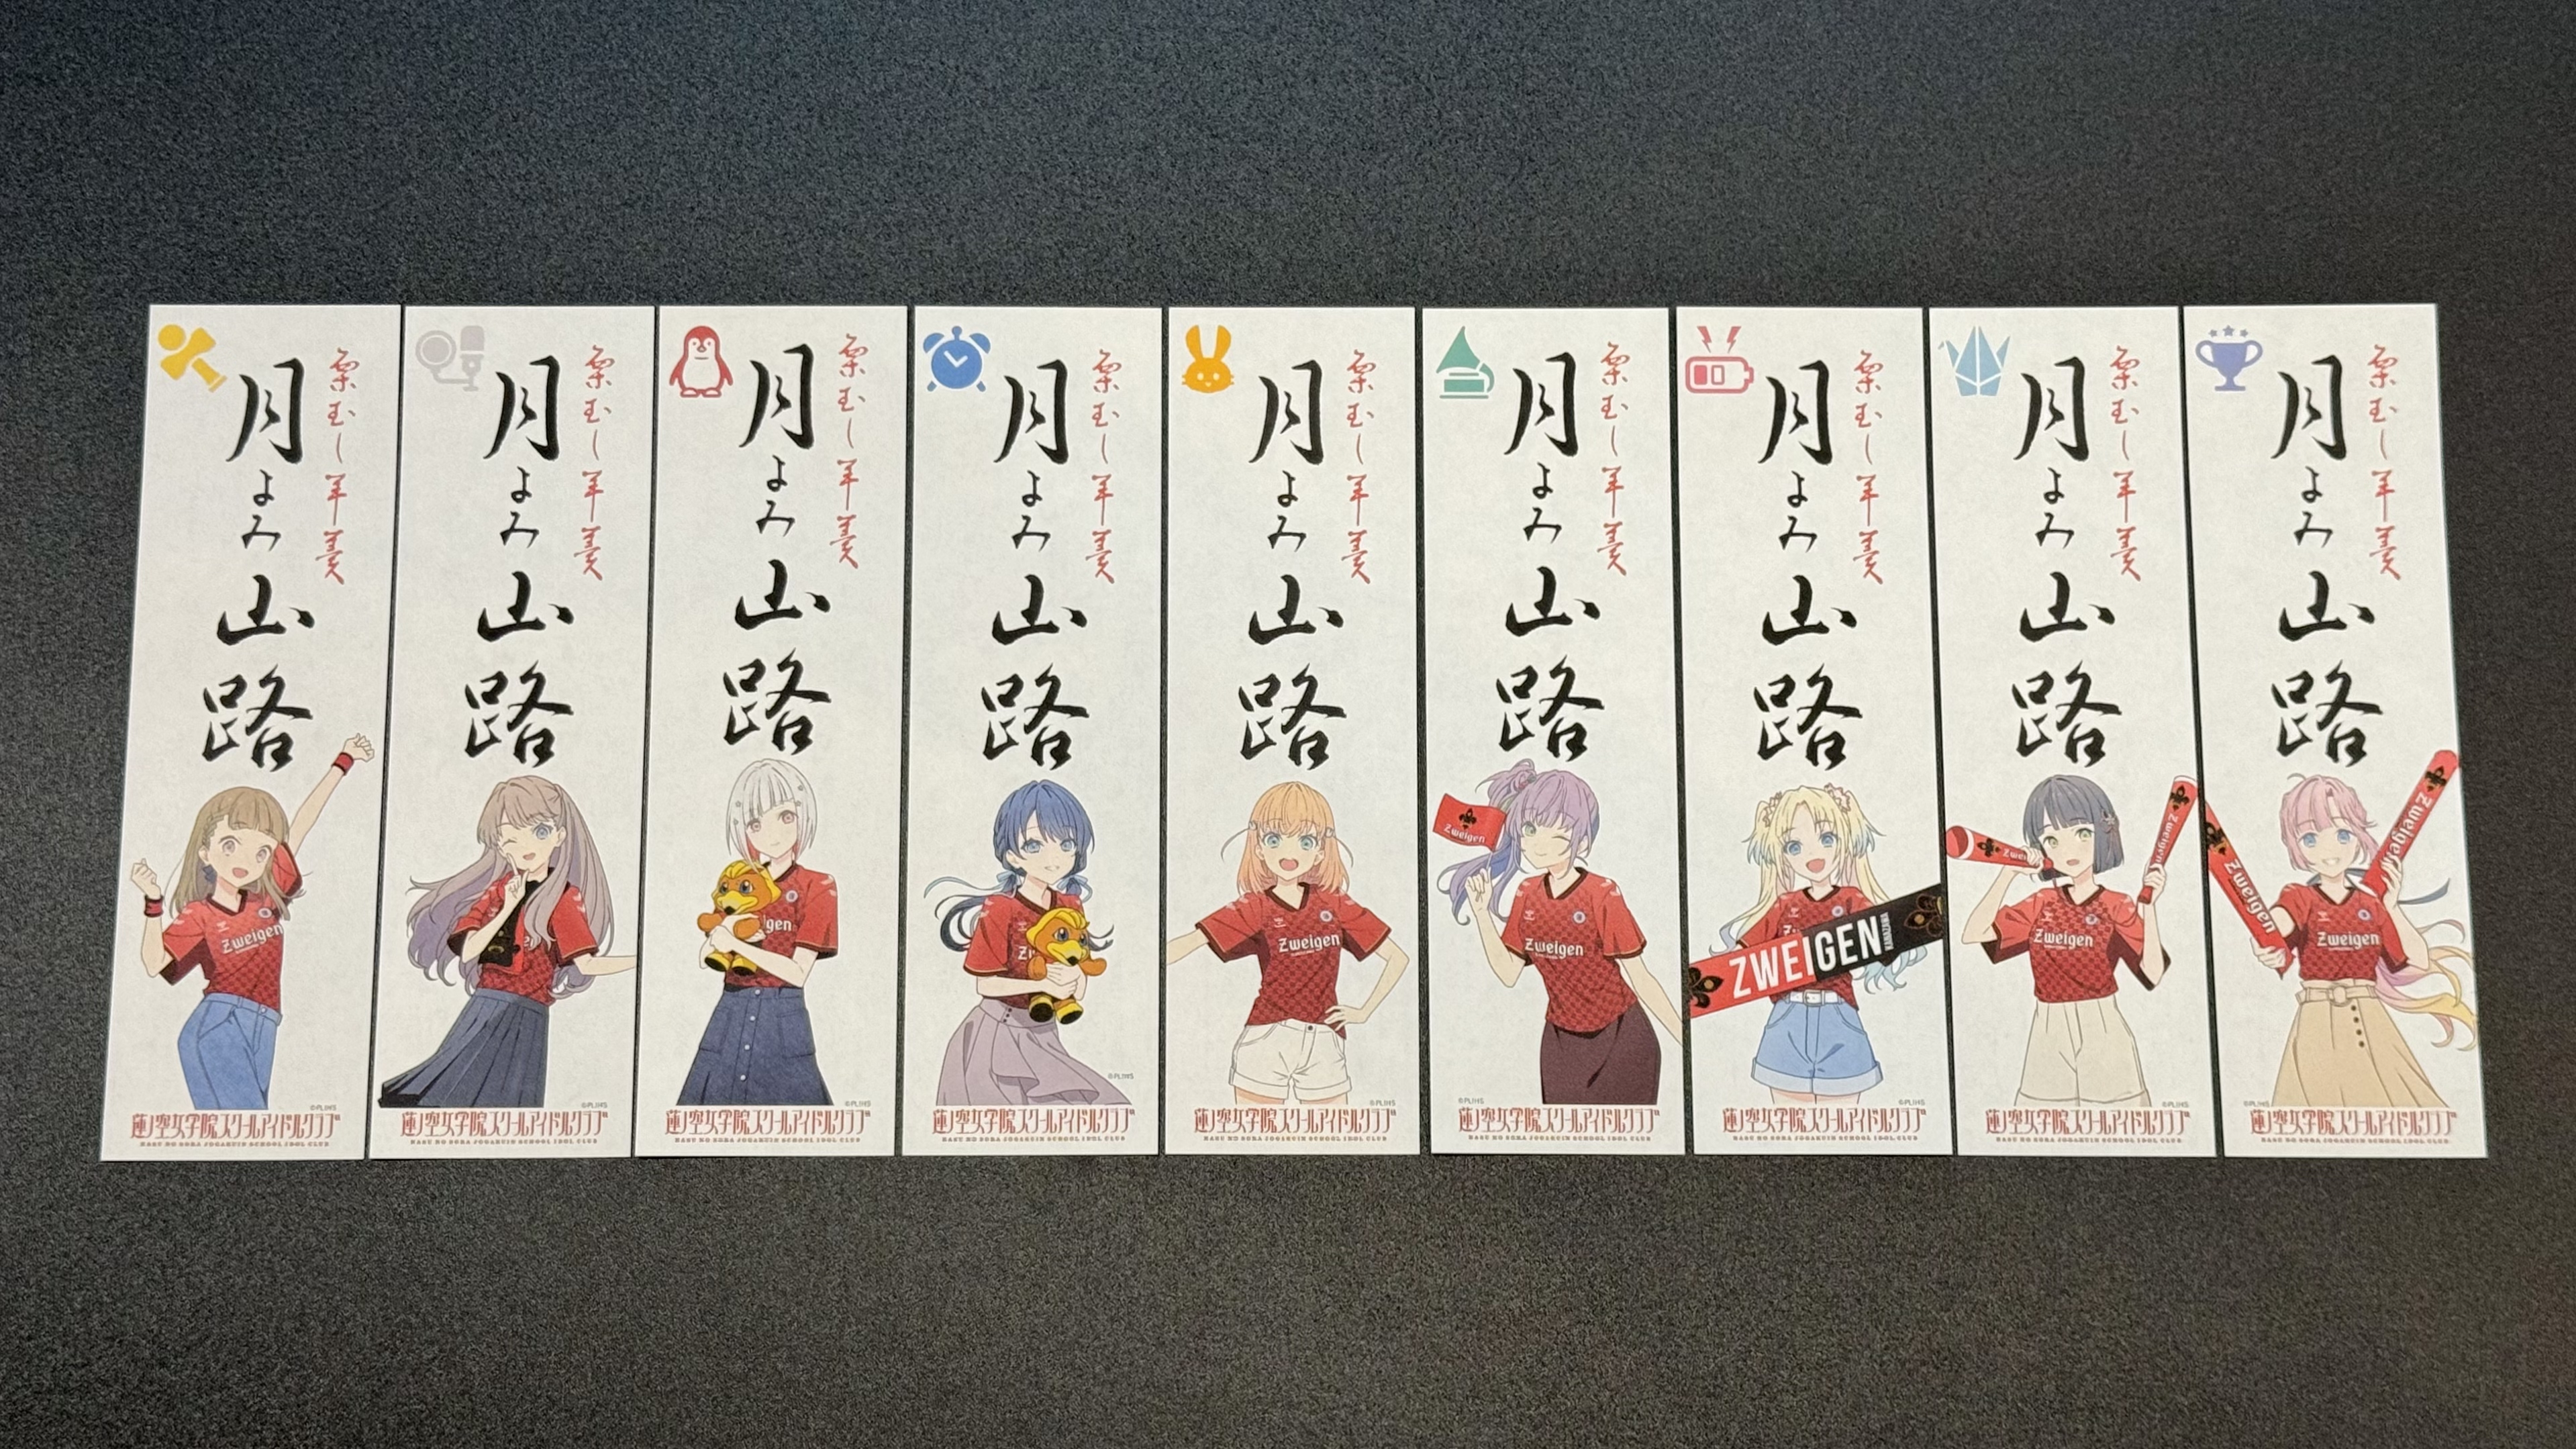 栗むし羊羹
月よみ山路
Zweigen
©PL!HS
蓮ノ空女学院スクールアイドルクラブ
HASU NO SORA JOGAKUIN SCHOOL IDOL CLUB
栗むし羊羹
月よみ山路
©PL!HS
蓮ノ空女学院スクールアイドルクラブ
HASU NO SORA JOGAKUIN SCHOOL IDOL CLUB
栗むし羊羹
月よみ山路
igen
©PL!HS
蓮ノ空女学院スクールアイドルクラブ
HASU NO SORA JOGAKUIN SCHOOL IDOL CLUB
栗むし羊羹
月よみ山路
©PL!HS
蓮ノ空女学院スクールアイドルクラブ
HASU NO SORA JOGAKUIN SCHOOL IDOL CLUB
栗むし羊羹
月よみ山路
Zweigen
©PL!HS
蓮ノ空女学院スクールアイドルクラブ
HASU NO SORA JOGAKUIN SCHOOL IDOL CLUB
栗むし羊羹
月よみ山路
Zweigen
Zweigen
©PL!HS
蓮ノ空女学院スクールアイドルクラブ
HASU NO SORA JOGAKUIN SCHOOL IDOL CLUB
栗むし羊羹
月よみ山路
ZWEIGEN
KANAZAWA
©PL!HS
蓮ノ空女学院スクールアイドルクラブ
HASU NO SORA JOGAKUIN SCHOOL IDOL CLUB
栗むし羊羹
月よみ山路
Zwei
Zweigen
Zweigen
©PL!HS
蓮ノ空女学院スクールアイドルクラブ
HASU NO SORA JOGAKUIN SCHOOL IDOL CLUB
栗むし羊羹
月よみ山路
Zweigen
Zweigen
Zweigen
©PL!HS
蓮ノ空女学院スクールアイドルクラブ
HASU NO SORA JOGAKUIN SCHOOL IDOL CLUB